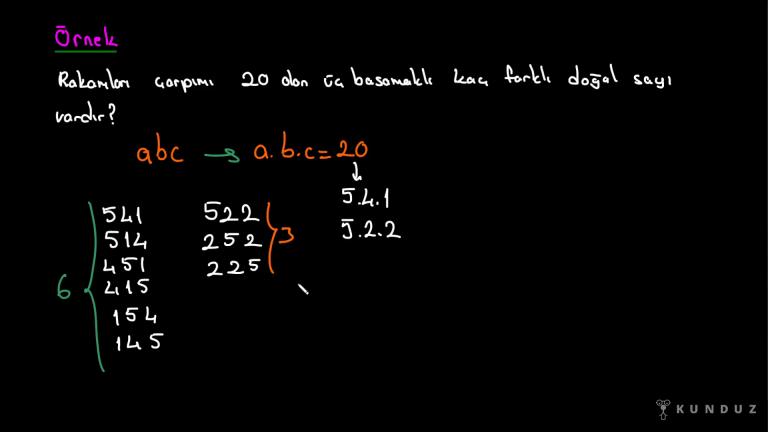 Örnek
Rakamları çarpımı 20 olan üç basamaklı kaç farklı doğal sayı
vardır?
abc → a.b.c=20
↓
5.4.1
5.2.2
541 522
514 252 3
451 225
6 415
154
145
KUNDUZ